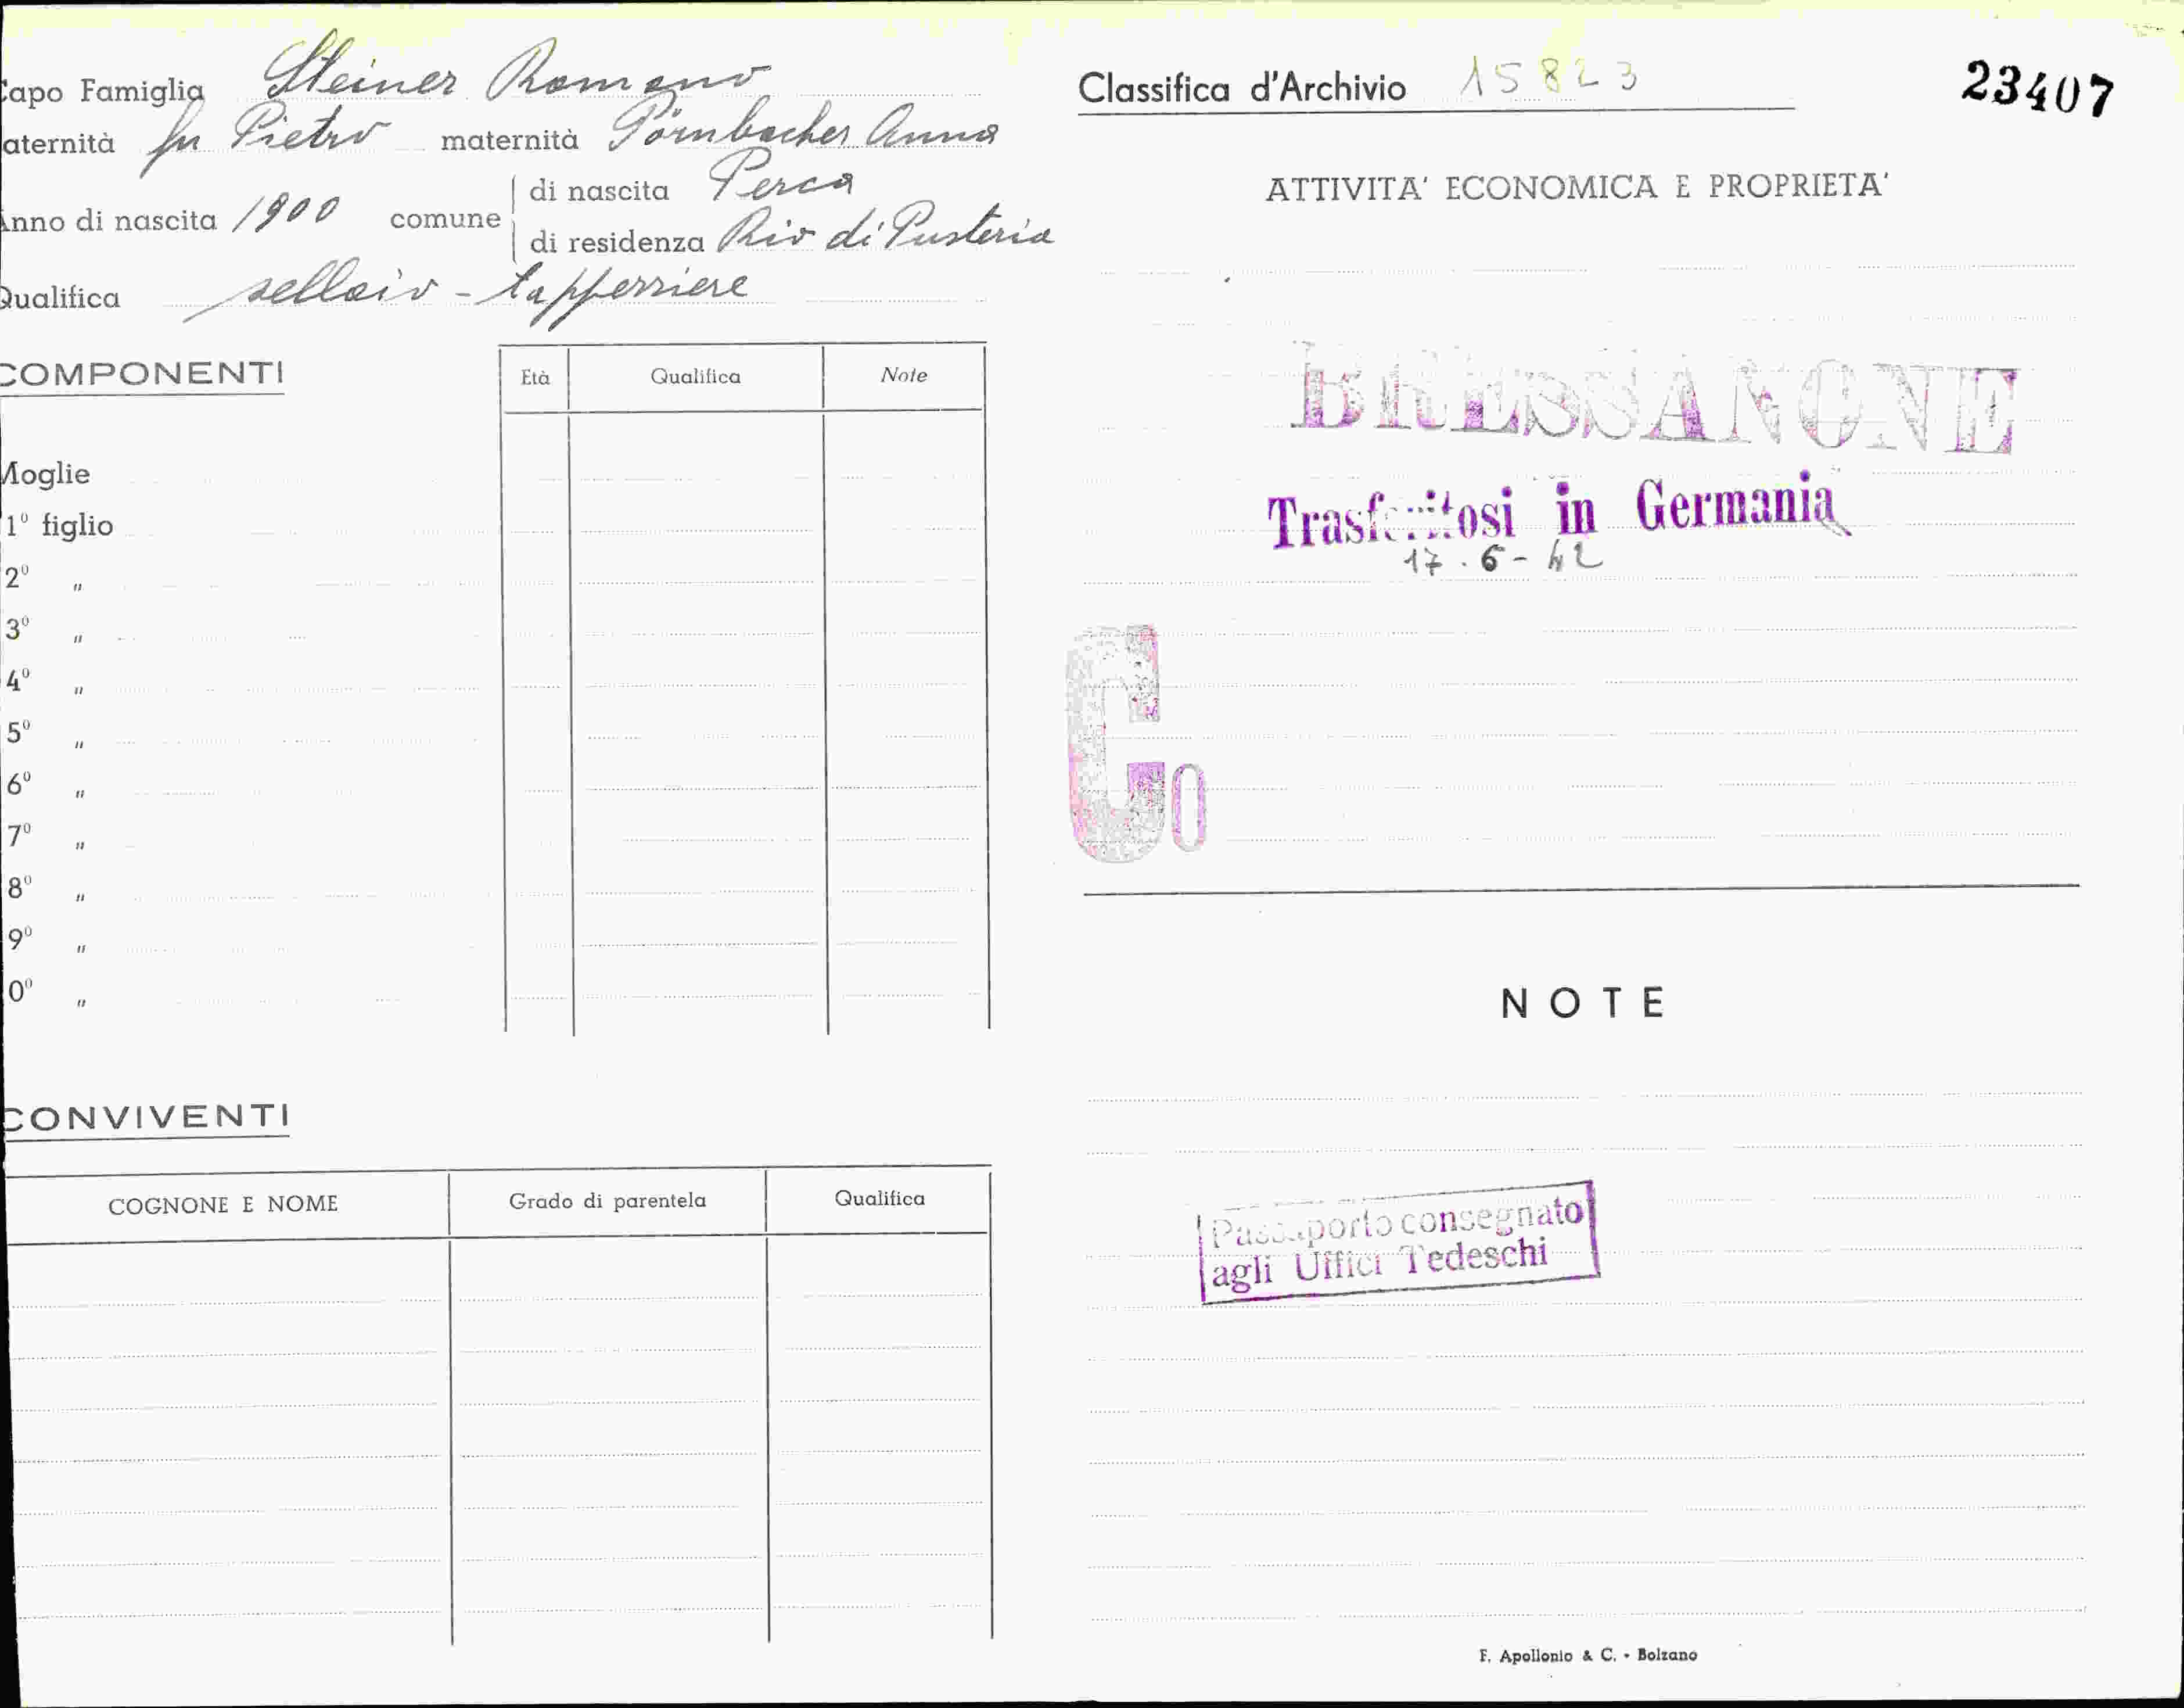 Capo Famiglia Steiner Romano
aternità fu Pietro maternità Pörnbacher Anna
Anno di nascita 1900 comune di nascita Perca
di residenza Rio di Pusteria
Qualifica sellaio - tapperriere
COMPONENTI
Età Qualifica Note
Moglie
1º figlio
2º "
3º "
4º "
5º "
6º "
7º "
8º "
9º "
0º "
CONVIVENTI
COGNONE E NOME Grado di parentela Qualifica
Classifica d'Archivio 15823
23407
ATTIVITA' ECONOMICA E PROPRIETA'
BRESSANONE
Trasferitosi in Germania
17.6-42
G0
NOTE
Passaporto consegnato
agli Uffici Tedeschi
F. Apollonio & C. - Bolzano